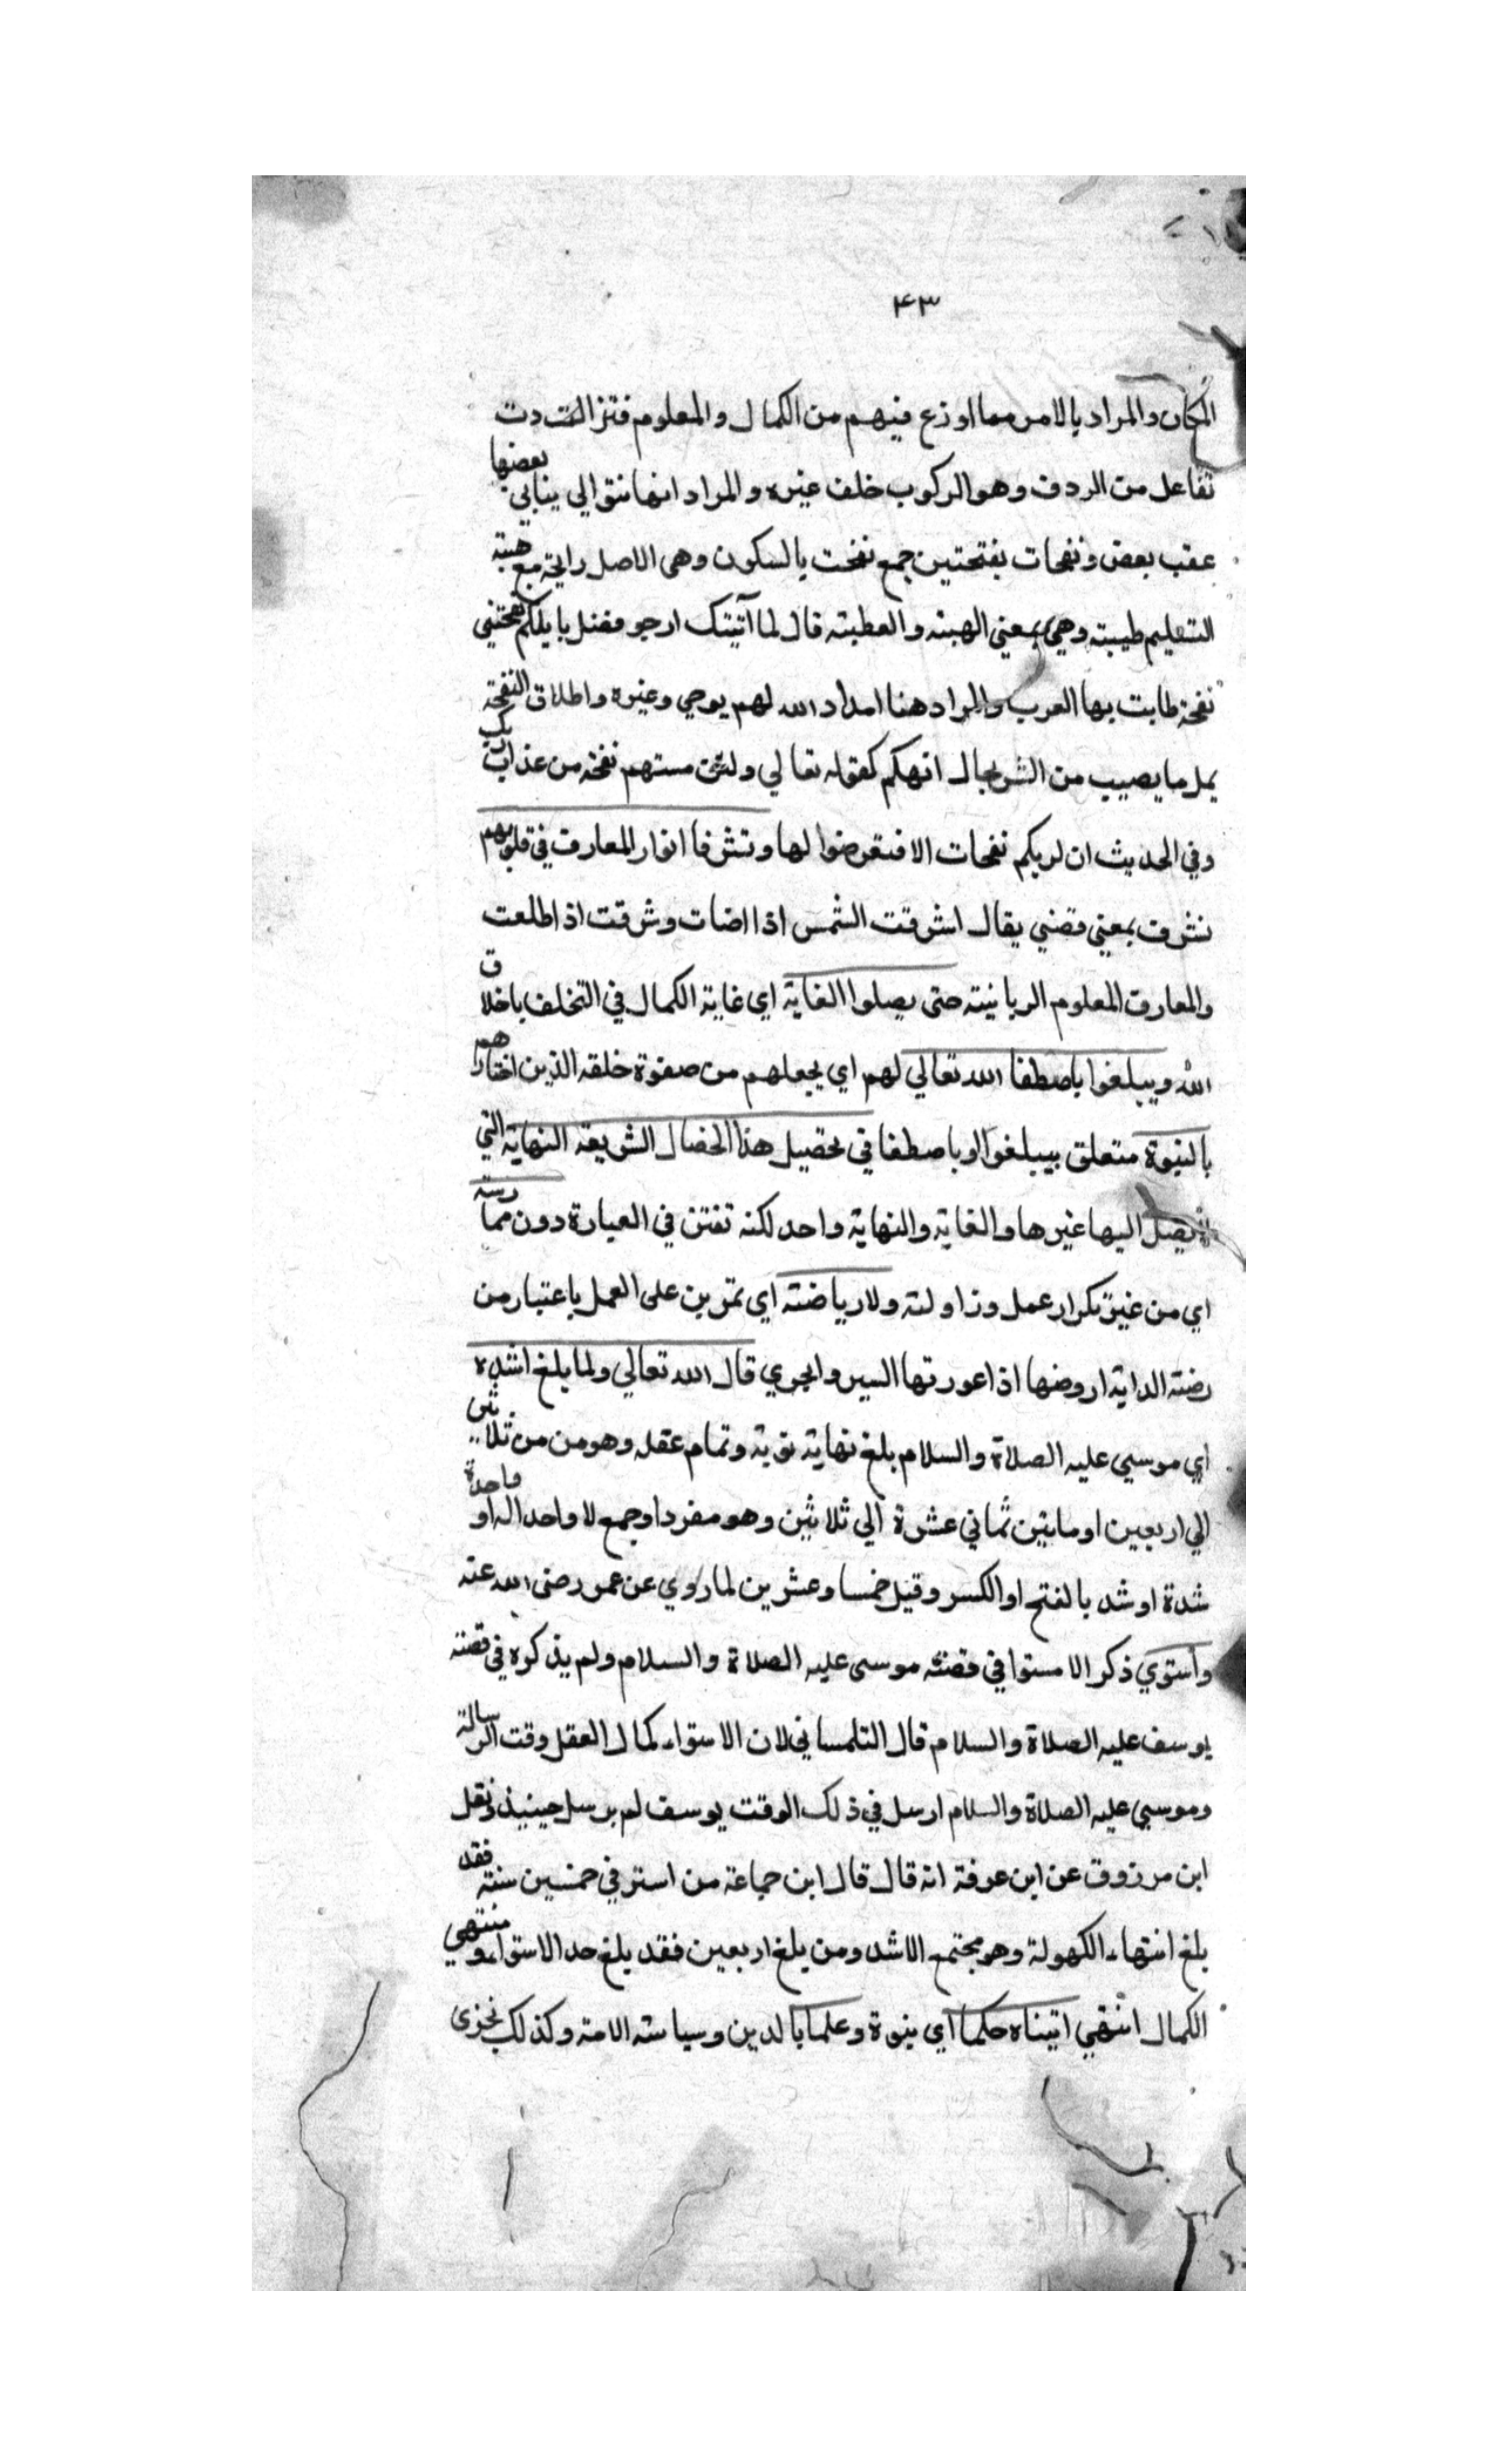 ٤٣
المكان والمراد بالامر مما اوزع فيهم من الكمال والمعلوم فتترادفت
تفاعل من الردف وهو الركوب خلف غيره والمراد انها نتوالي يتابي بعضها
عقب بعض ونفحات بفتحتين جمع نفحت بالسكون وهى الاصل رايحة مع هيبة
التسليم طيبته وهي بمعني الهبته والعطيته قال لما آتيتك ارجو فضل يا يلكم نفحتني
نفحة طابت بها العرب والمراد هنا امداد الله لهم يوحي وغيره واطلاق النفحة
يمل ما يصيب من الشر بجال انهكم كقوله تعالي ولئن مستهم نفحة من عذاب ربك
وفي الحديث ان لربكم نفحات الا فتعرضوا لها وتشرفا انوار المعارف في قلوبهم
نشرف بمعني فضني يقال اشرقت الشمس اذا اضات وشرقت اذ اطلعت
والمعارف المعلوم الربانيته حتى يصلوا الغاية اي غاية الكمال في التخلف باخلاق
الله ويبلغوا باصطفا الله تعالي لهم اي يجعلهم من صفوة خلقه الذين اختارهم
بالنبوة متعلق بيبلغوا او باصطفا في تحصيل هذا الخصال الشريعة النهاية التي
يصل اليها غيرها والغاية والنهاية واحد لكنه تفتن في العبارة دون ممارسته
اي من غير تكرار عمل وزاولته ولا رياضته اي تمرين على العمل باعتبار من
رضته الداية اروضها اذ اعورتها السير والجري قال الله تعالي ولما بلغ اشده
اي موسي عليه الصلاة والسلام بلغ نهاية قوية وتمام عقله وهو من من ثلاثين
الي اربعين او مابين ثماني عشرة الي ثلاثين وهو مفرد او جمع لا واحد اله او واحدة
شدة او شد بالفتح او الكسر وقيل خمسا وعشرين لما روي عن عمر رضى الله عنه
واستوي ذكر الاستوا في قصته موسى عليه الصلاة والسلام ولم يذكره في قصته
يوسف عليه الصلاة والسلام قال التلمساني لان الاستواء كمال العقل وقت الرسالة
وموسي عليه الصلاة والسلام ارسل في ذلك الوقت يوسف لم يرسل حينيذ ونقل
ابن مرزوق عن ابن عرفة انه قال قال ابن جماعة من استر في خمسين سنته فقد
بلغ انتهاء الكهولة وهو مجتمع الاشد ومن بلغ اربعين فقد بلغ حد الاستواء ومنتهي
الكمال انتهي اتيناه حكما اي بنوة وعلما بالدين وسياسته الامة وكذلك نجزى